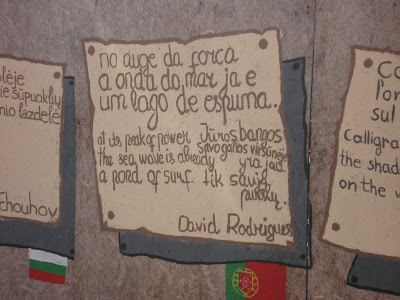 no auge da força
a onda do mar já é
um lago de espuma.
at its peak of power
the sea wave is already
a pond of surf.
Jūros bangos
savo galios viršūnėje
yra jau
tik
David Rodrigues
lėje
ie sūpuoklių
nio lazdelė
Chouhov
Co
l'on
sul
Calligra
the shad
on the w